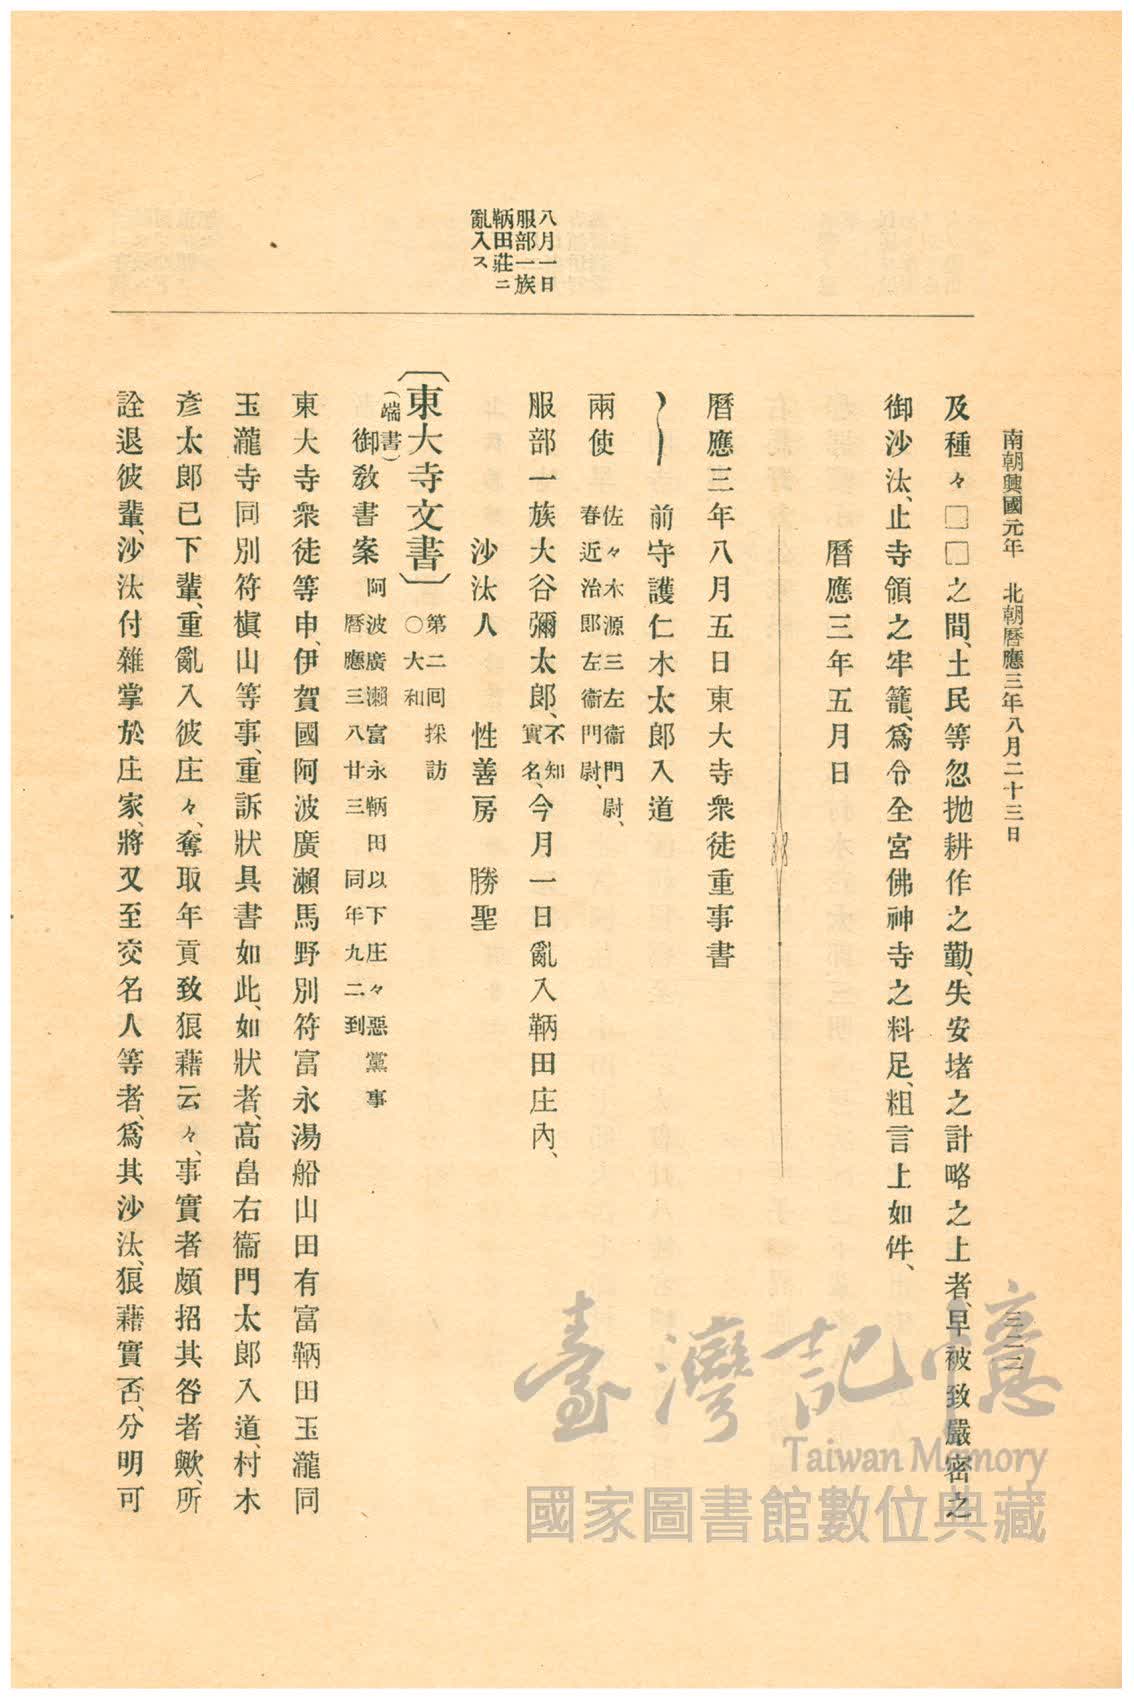 南朝興國元年　北朝曆應三年八月二十三日
三二二
八月一日
服部一族
鞆田莊ニ
亂入ス
及種々□□之間、土民等忽抛耕作之勤、失安堵之計略之上者、早被致嚴密之
御沙汰、止寺領之牢籠、爲令全宮佛神寺之料足、粗言上如件、
曆應三年五月日
曆應三年八月五日東大寺衆徒重事書
前守護仁木太郎入道
兩使　佐々木源三左衞門尉、
春近治郎左衞門尉、
服部一族大谷彌太郎、不知
實名、今月一日亂入鞆田庄內、
沙汰人　性善房　勝聖
〔東大寺文書〕第二回採訪
○大和
（端書）
御敎書案　阿波廣瀨富永鞆田以下庄々惡黨事
曆應三八廿三　同年九二到
東大寺衆徒等申、伊賀國阿波廣瀨馬野別符富永湯船山田有富鞆田玉瀧同
玉瀧寺同別符槇山等事、重訴狀具書如此、如狀者、高畠右衞門太郎入道、村木
彥太郎已下輩、重亂入彼庄々、奪取年貢致狼藉云々、事實者頗招其咎者歟、所
詮退彼輩、沙汰付雜掌於庄家、將又至交名人等者、爲其沙汰、狼藉實否、分明可
臺灣記憶
Taiwan Memory
國家圖書館數位典藏